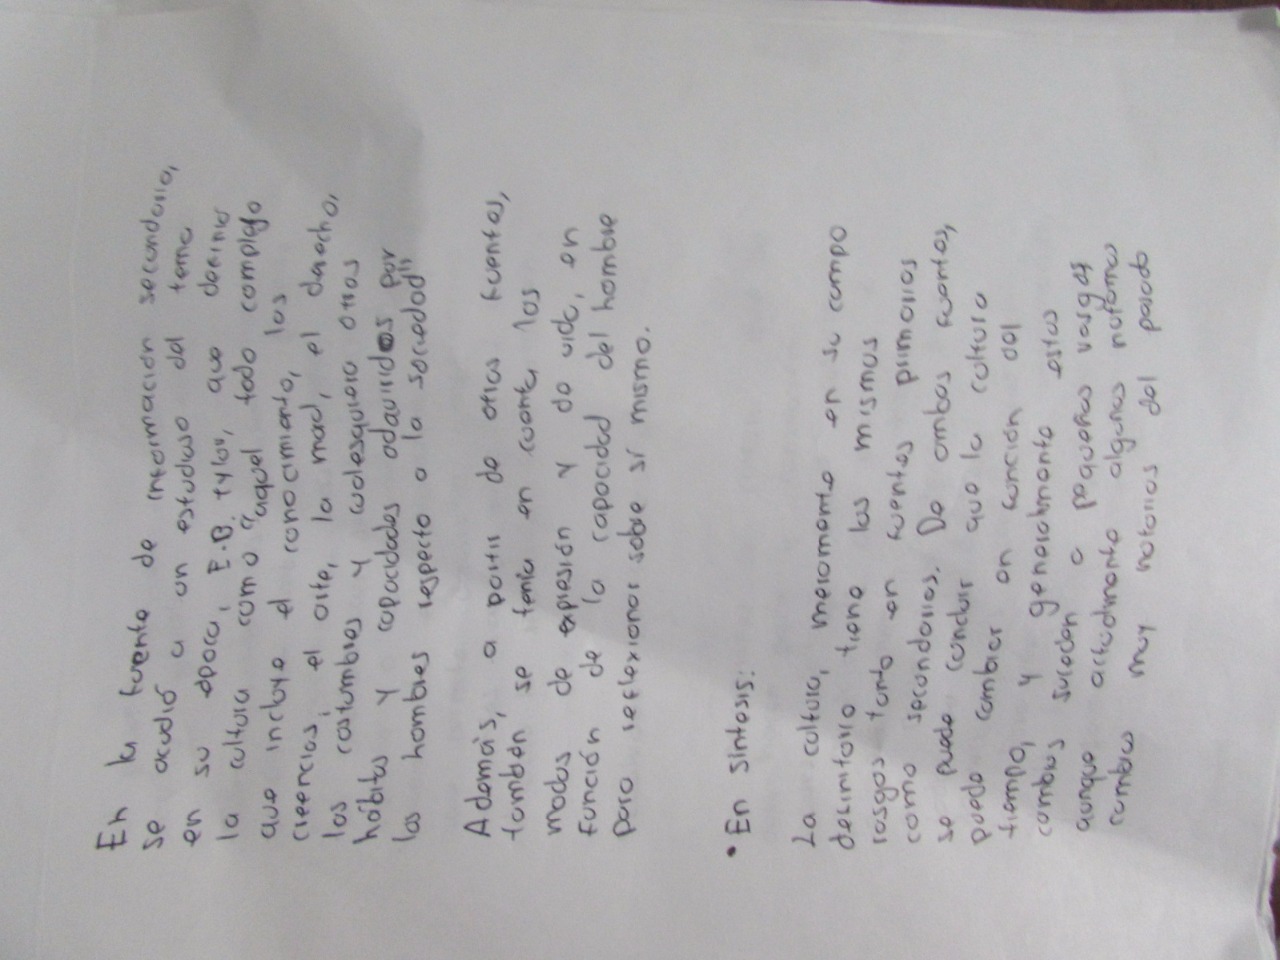 En la fuente de información secundaria,
se acudió a un estudioso del tema
en su época, E.B. tylor, que definió
la cultura como "aquel todo complejo
que incluye el conocimiento, las
creencias, el arte, la mad, el derecho,
las costumbres y cualesquiera otros
hábitos y capacidades adquiridos por
los hombres respecto a la sociedad"
Además, a partir de otras fuentes,
también se tenía en cuenta los
modos de expresión y de vida, en
función de la capacidad del hombre
para reflexionar sobre sí mismo.
• En síntesis:
La cultura, meramente en su campo
definitorio tiene los mismos
rasgos tanto en fuentes primarias
como secundarias. De ambas fuentes,
se puede concluir que la cultura
puede cambiar en función del
tiempo, y generalmente estos
cambios suceden a pequeños rasgos
aunque actualmente algunos
cambios muy notorios del pasado